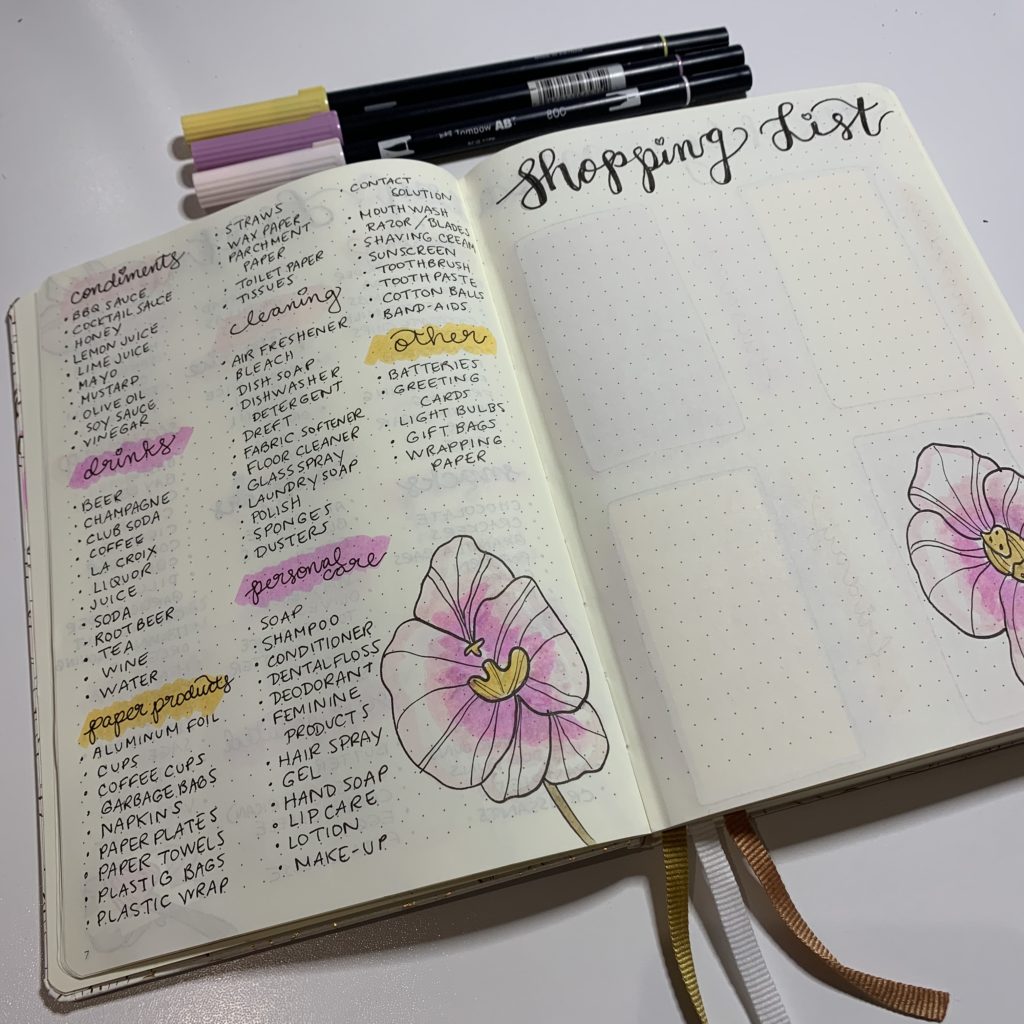 condiments
• BBQ SAUCE
• COCKTAIL SAUCE
• HONEY
• LEMON JUICE
• LIME JUICE
• MAYO
• MUSTARD
• OLIVE OIL
• SOY SAUCE
• VINEGAR
drinks
• BEER
• CHAMPAGNE
• CLUB SODA
• COFFEE
• LA CROIX
• LIQUOR
• JUICE
• SODA
• ROOT BEER
• TEA
• WINE
• WATER
paper products
• ALUMINUM FOIL
• CUPS
• COFFEE CUPS
• GARBAGE BAGS
• NAPKINS
• PAPER PLATES
• PAPER TOWELS
• PLASTIG BAGS
• PLASTIC WRAP
7
• STRAWS
• WAX PAPER
• PARCHMENT
PAPER
• TOILET PAPER
• TISSUES
cleaning
• AIR FRESHENER
• BLEACH
• DISH SOAP
• DISHWASHER
DETERGENT
• DREFT
• FABRIC SOFTENER
• FLOOR CLEANER
• GLASS SPRAY
• LAUNDRY SOAP
• POLISH
• SPONGES
• DUSTERS
personal
care
• SOAP
• SHAMPOO
• CONDITIONER
• DENTAL FLOSS
• DEODORANT
• FEMININE
PRODUCTS
• HAIR SPRAY
• GEL
• HAND SOAP
• LIP CARE
• LOTION
• MAKE-UP
• CONTACT
SOLUTION
• MOUTHWASH
• RAZOR/BLADES
• SHAVING CREAM
• SUNSCREEN
• TOOTHBRUSH
• TOOTHPASTE
• COTTON BALLS
• BAND-AIDS
other
• BATTERIES
• GREETING
CARDS
• LIGHT BULBS
• GIFT BAGS
• WRAPPING
PAPER
Shopping List
Tombow ABT
800